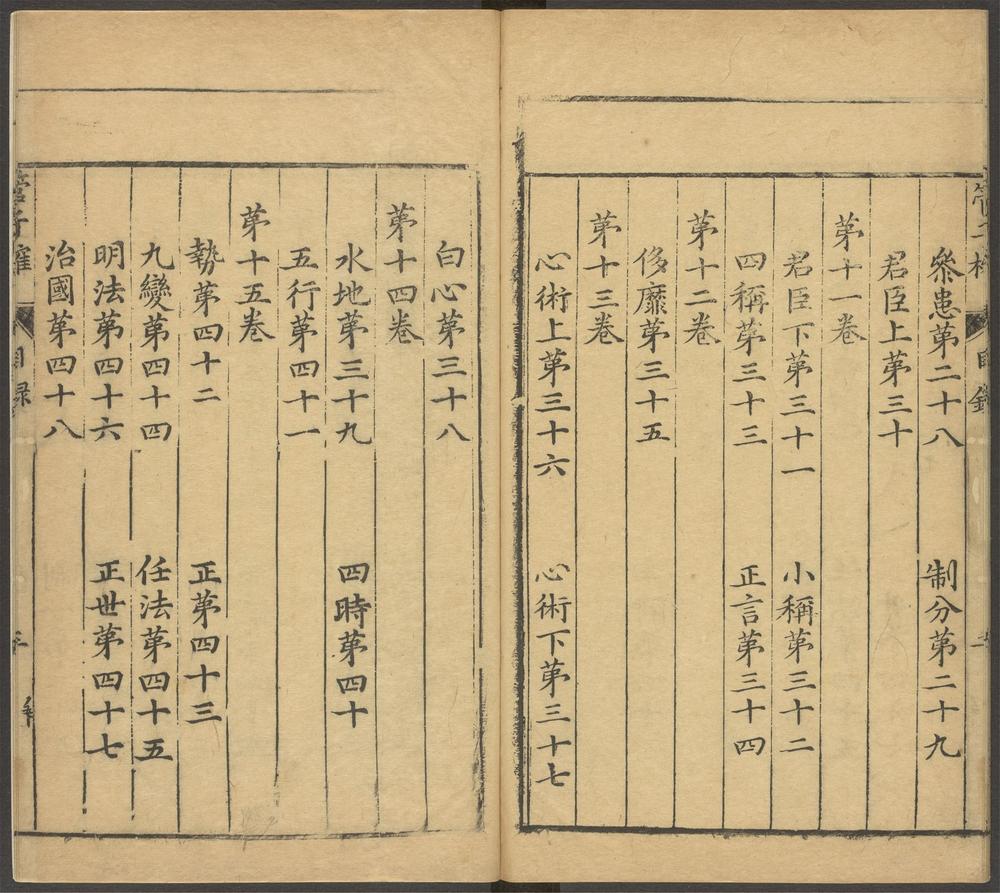 參患第二十八 制分第二十九
君臣上第三十
第十一卷
君臣下第三十一 小稱第三十二
四稱第三十三 正言第三十四
第十二卷
侈靡第三十五
第十三卷
心術上第三十六 心術下第三十七
白心第三十八
第十四卷
水地第三十九 四時第四十
五行第四十一
第十五卷
勢第四十二 正第四十三
九變第四十四 任法第四十五
明法第四十六 正世第四十七
治國第四十八
管子 目録